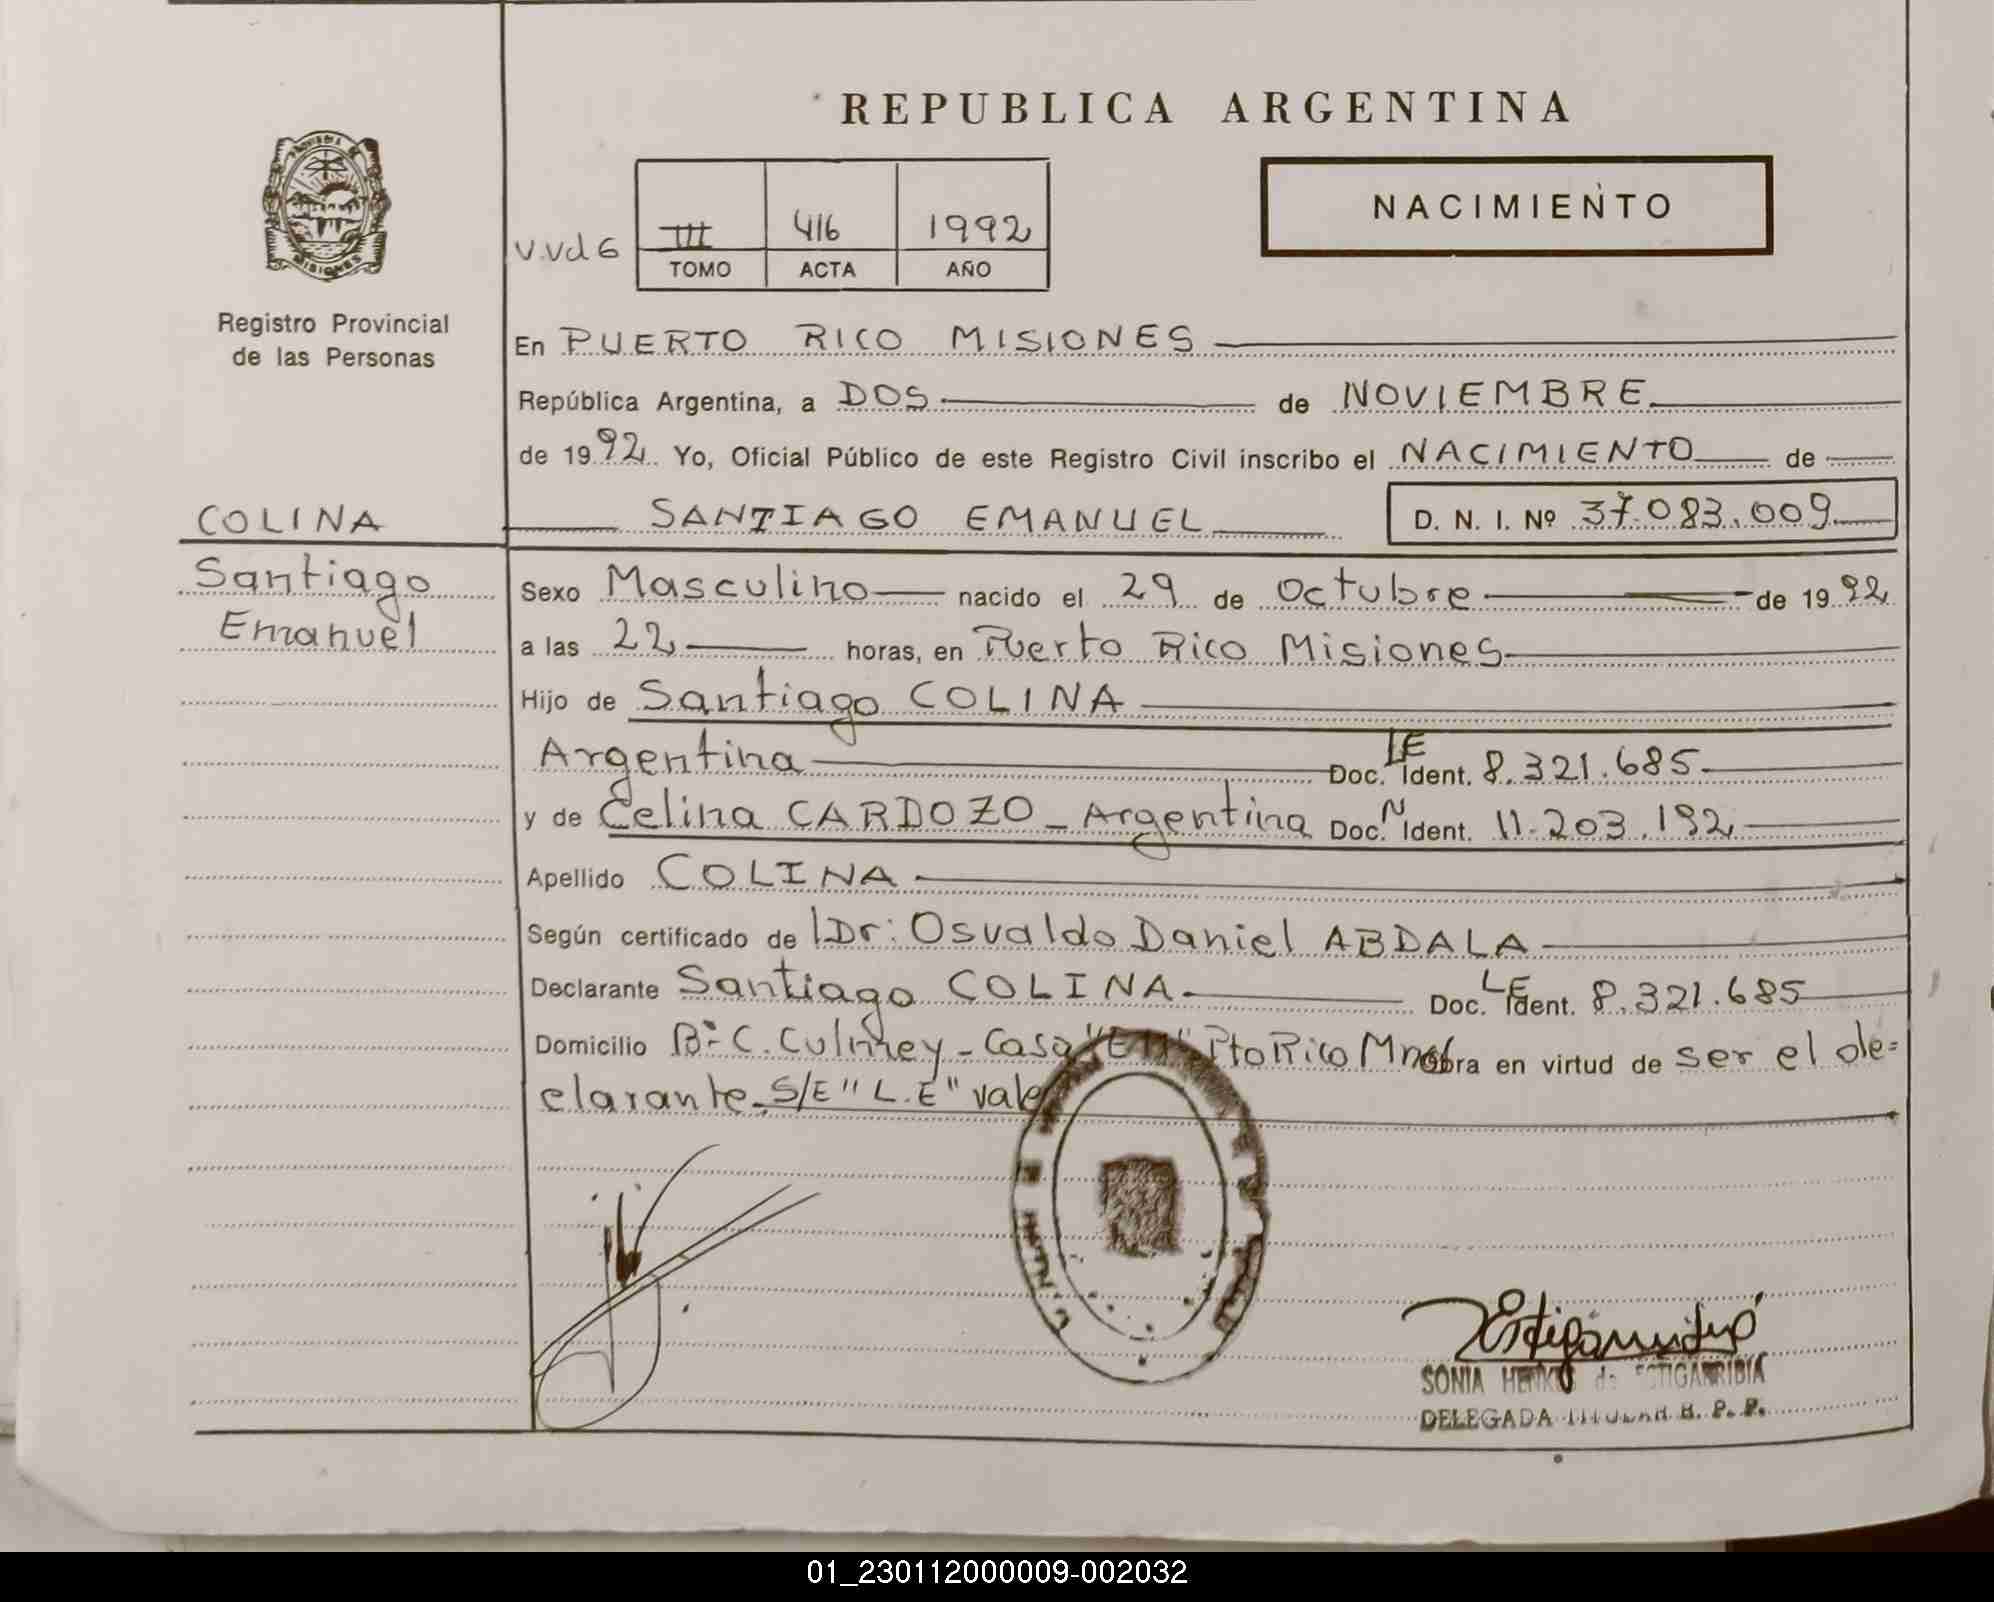 REPUBLICA ARGENTINA
PROVINCIA DE
MISIONES
Registro Provincial
de las Personas
III 416 1992
TOMO ACTA AÑO
NACIMIENTO
En PUERTO RICO MISIONES
República Argentina, a DOS de NOVIEMBRE
de 1992 Yo, Oficial Público de este Registro Civil inscribo el NACIMIENTO de
COLINA
SANTIAGO EMANUEL D. N. I. Nº 37.083.009
Santiago
Emanuel
Sexo Masculino nacido el 29 de Octubre de 1992
a las 22 horas, en Puerto Rico Misiones
Hijo de Santiago COLINA
Argentina Doc. LE Ident. 8.321.685
y de Celina CARDOZO - Argentina Doc. N Ident. 11.203.192
Apellido COLINA
Según certificado de l Dr: Osvaldo Daniel ABDALA
Declarante Santiago COLINA Doc. LE Ident. 8.321.685
Domicilio Bº C. Culmey - Casa Pto Rico Mnes Obra en virtud de ser el de=
clarante. S/E "L.E" vale
SONIA de ESTIGARRIBIA
DELEGADA TITULAR R. P. P.
01_230112000009-002032